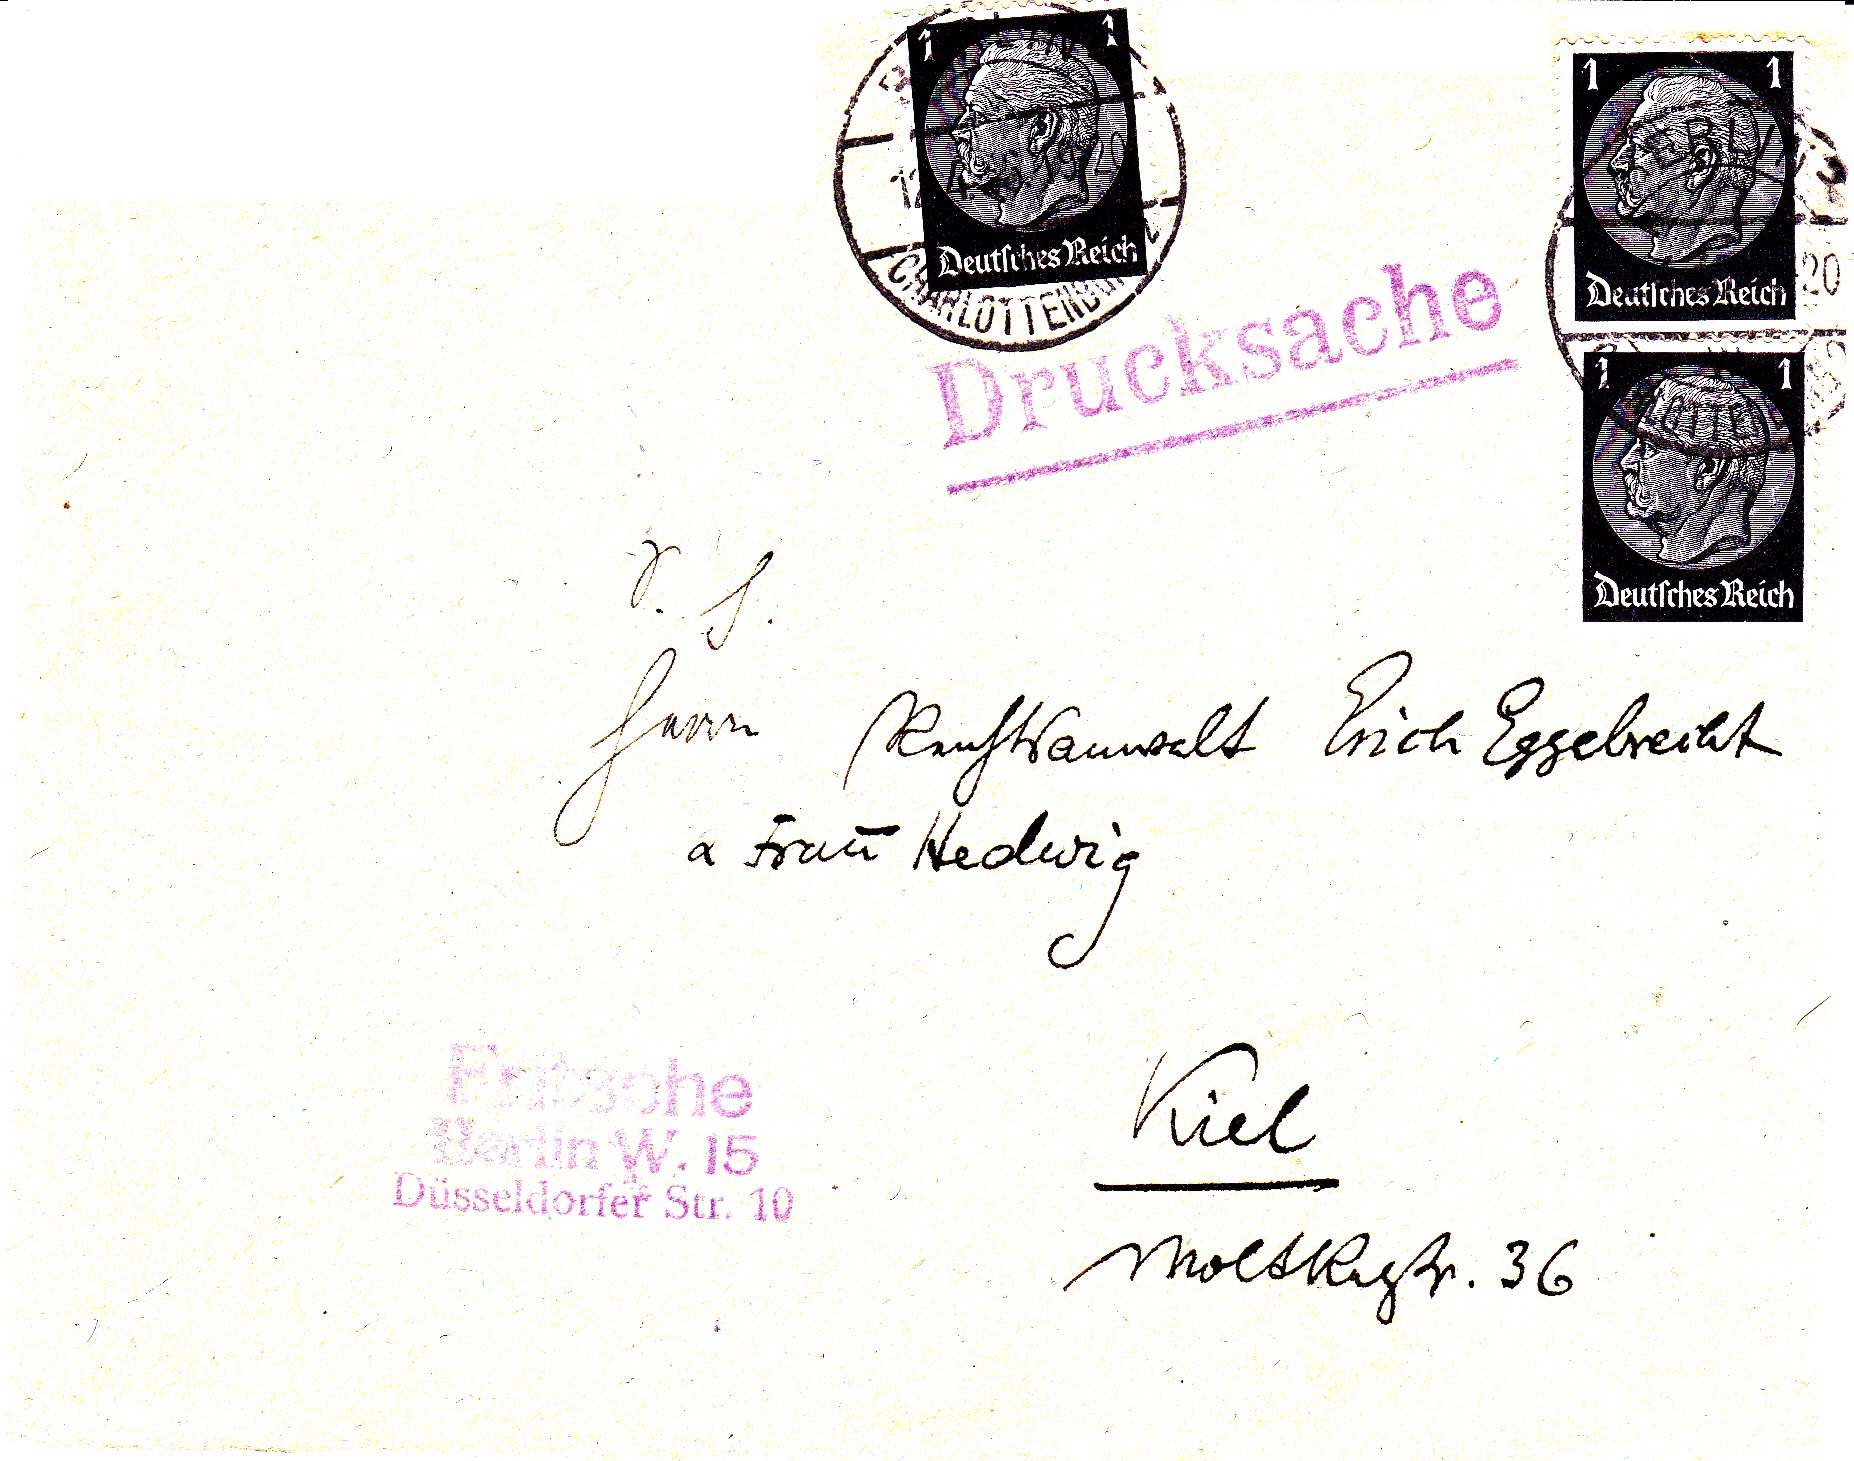 1 1
Deutſches Reich
CHARLOTTENBURG
1 1
BERLIN
20
Deutſches Reich
1 1
Deutſches Reich
Drucksache
Herrn Rechtsanwalt Erich Eggebrecht
Frau Hedwig
Fritsche
Berlin W. 15
Düsseldorfer Str. 10
Kiel
Moltkestr. 36